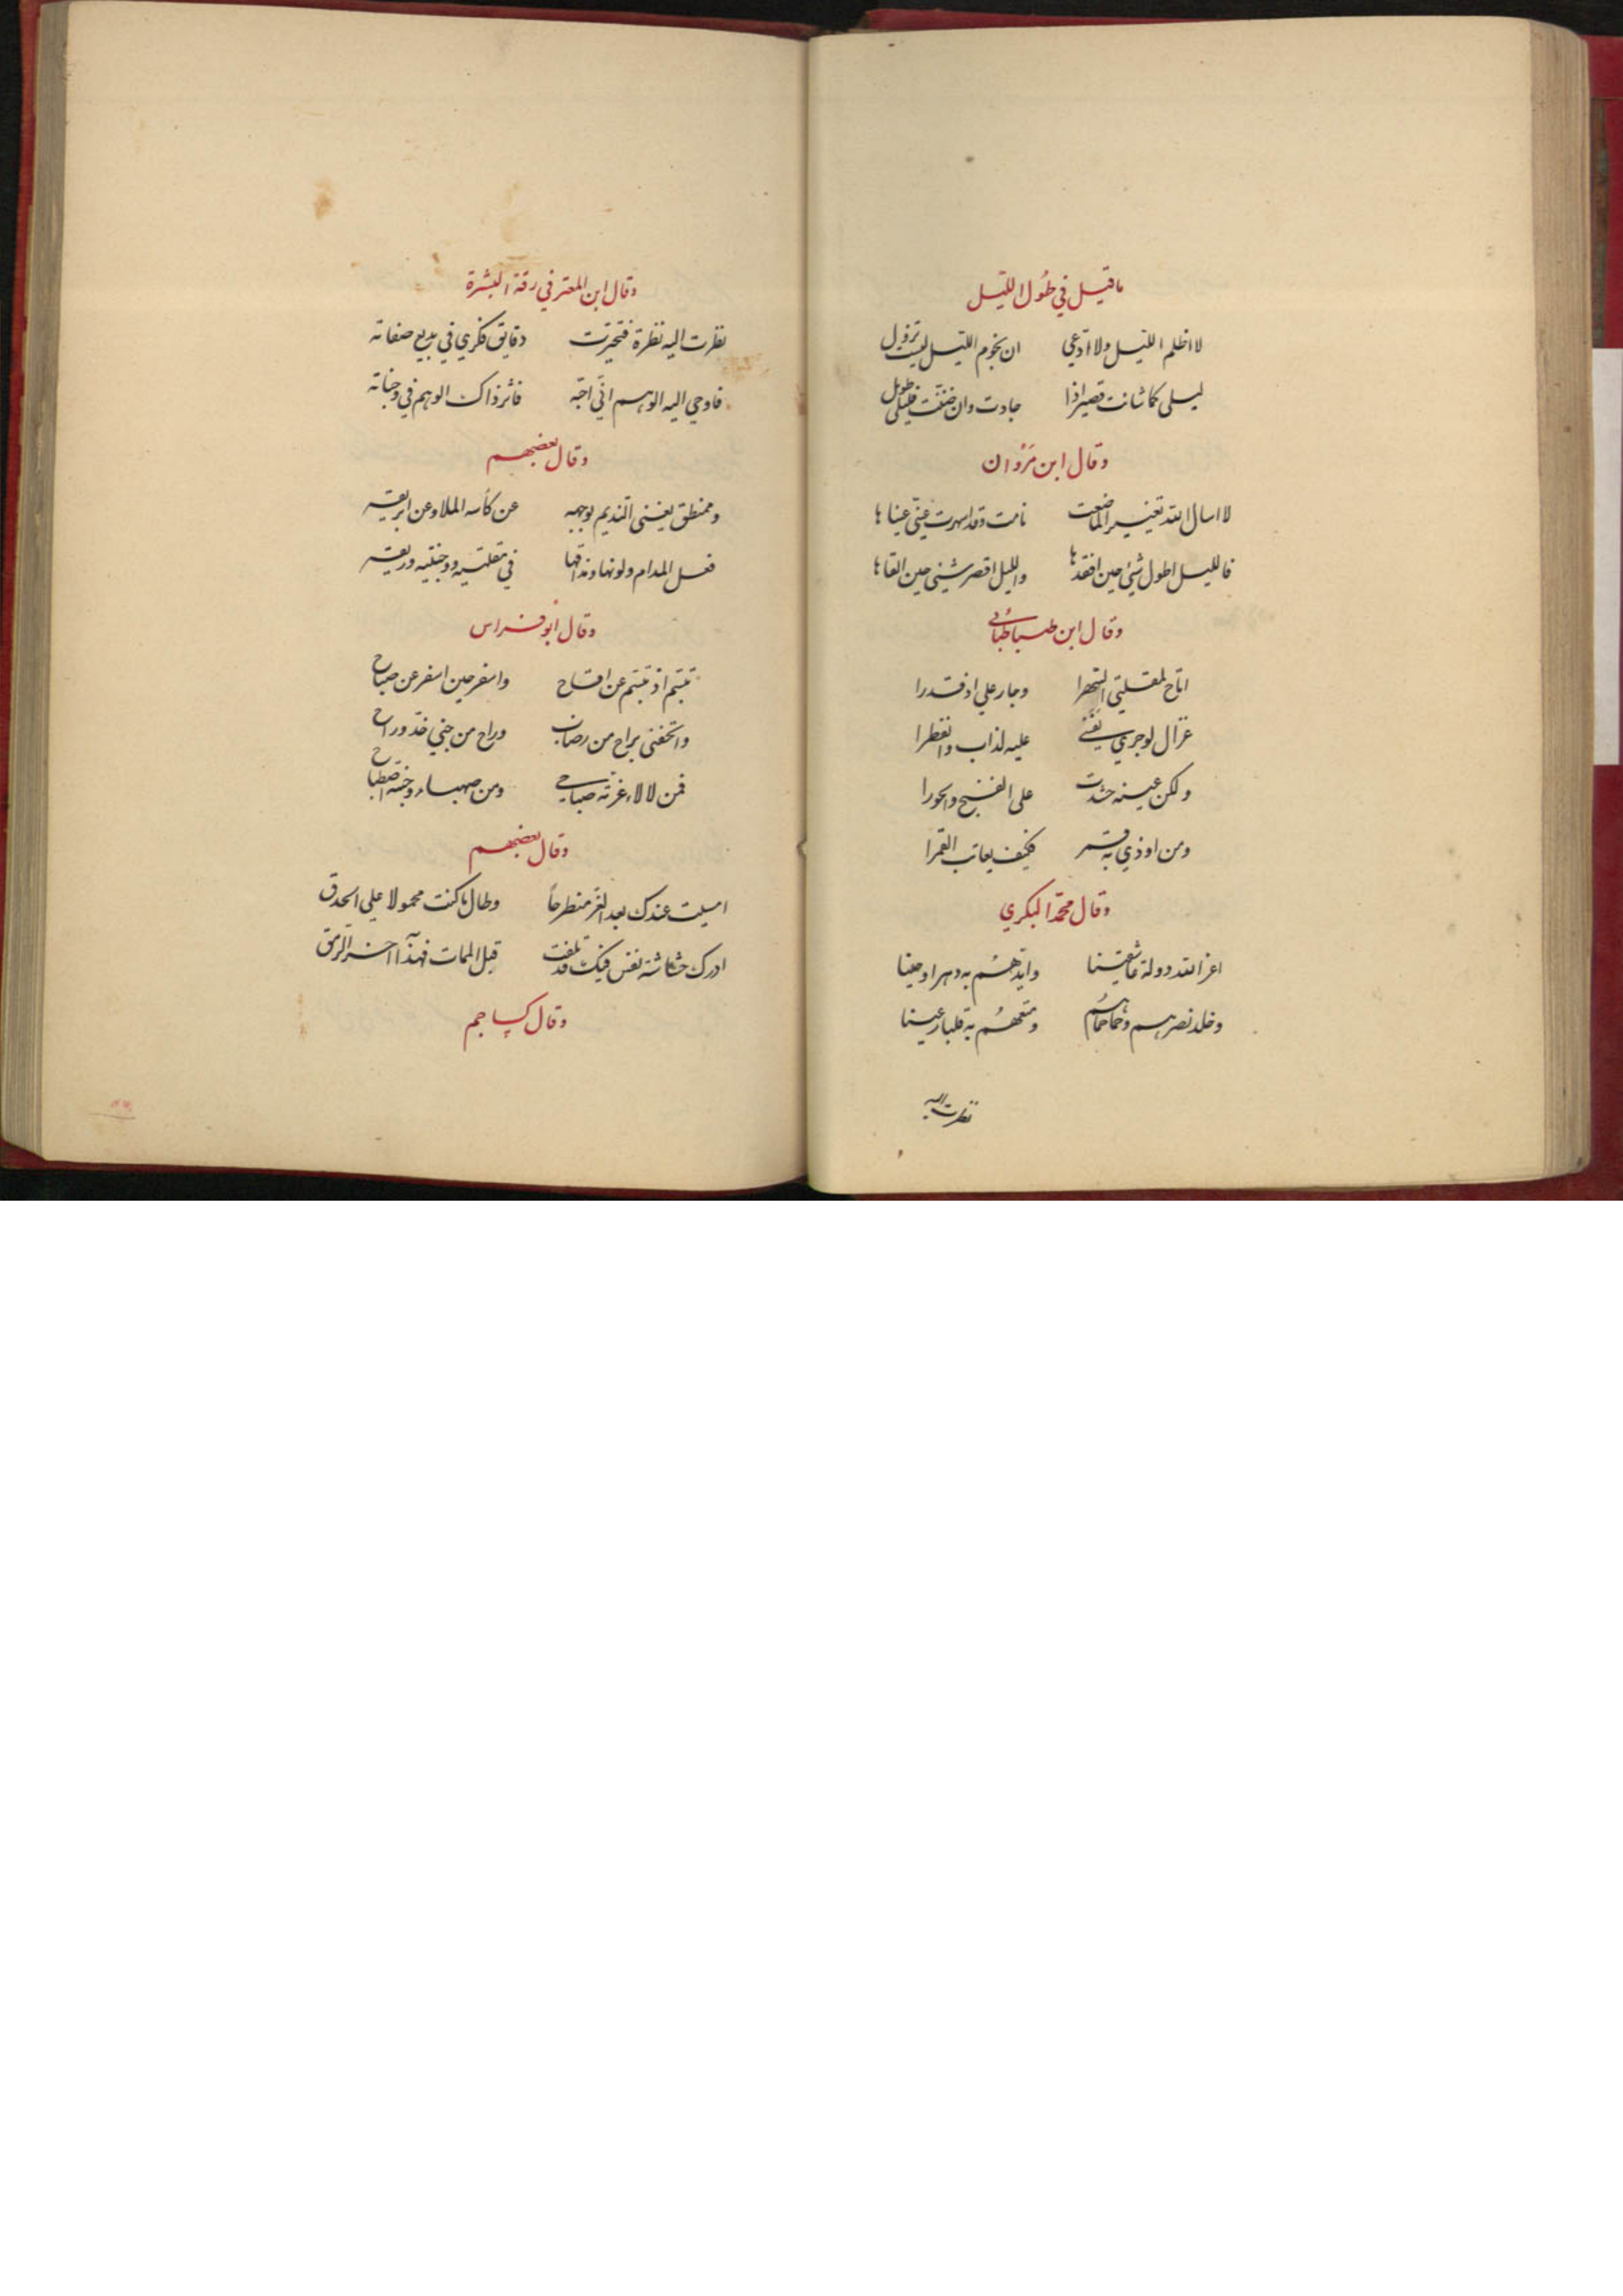 ما قيل في طُول الليّل
لا اظلم الليل ولا ادّعي ان نجوم الليّل ليست تزول
ليلى كما شانت قصير اذا جادت وان ضنّت فليلى طويل
وقال ابن مَرْوان
لا اسال الله تغيير الما صنعت نامت وقد اسهرت عينيّ عيناها
فالليل اطول شيئ حين افقدها والليل اقصر شيئ حين القاها
وقال ابن طباطبُا
اتاح لمقلتى السّهرا وجار علي اذ قدرا
غزال لوجري نَفَسى عليه لذاب وانفطرا
ولكن عينه حشدت على الغنج والحورا
ومن اوذي به قمر فكيف يعاتب القمرا
وقال محمّد البكري
اعز الله دولة عاشقينا وايدهُم به دهرا وحينا
وخلد نصرهم وحماحماهُم ومتعهُم به قلبا وعينا
نظرت اليه
وقال ابن المعتز في رقة البشرة
نظرت اليه نظرة فتحيرت دقايق فكري في بديع صفاته
فاوحي اليه الوهم انّي احبّه فاثر ذاك الوهم في وجناته
وقال بعضهم
وممنطق يغنى النديم بوجهه عن كأسه الملا وعن ابريقه
فعل المدام ولونها ومذاقها في مقلتيه ووجنتيه وريقه
وقال ابو فراس
تبسّم اذ تبسّم عن اقاح واسفر حين اسفر عن صباح
واتحفنى براح من رضاب وراح من جني خدّ وراح
فمن لالاء غرّته صباحي ومن صهباء وجنته اصطباح
وقال بعضهم
امسيت عندك بعد العزّ منطرحاً وطال ما كنت محمولا علي الحدق
ادرك حشاشة نفس فيك قد تلفت قبل الممات فهذا آخر الرمق
وقال كساجم